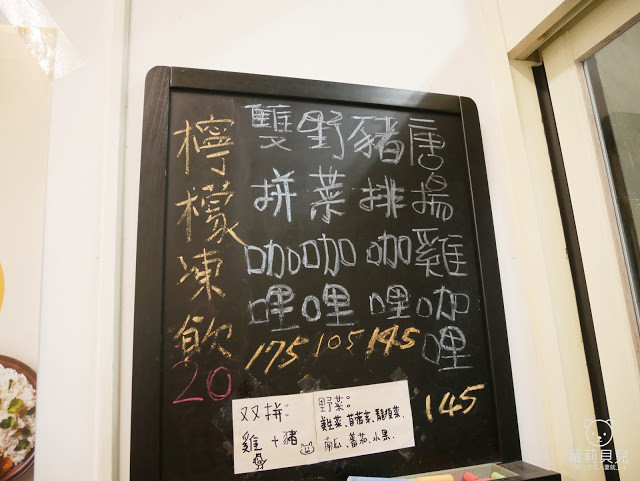 唐揚雞咖哩
145
豬排咖哩
145
野菜咖哩
105
雙拼咖哩
175
檸檬凍飲
20
双拼：
雞+豬
野菜：
南瓜、蕃茄、水果.
蘿莉貝兒